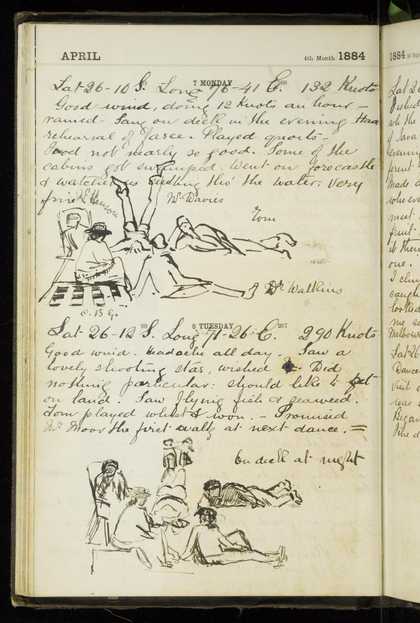 APRIL 4th Month 1884
7 MONDAY
Lat 26-10 S. Long 76-41 E. 132 Knots
Good wind, doing 12 Knots an hour -
rained. Sang on deck in the evening Had
rehearsal of Farce. Played quoits -
Food not nearly so good. Some of the
cabins got swamped. Went on forecastle
& watched us rushing thro' the water. Very
fine
Mr Davies
Tom
Dr Watkins
C. B. G.
8 TUESDAY
Lat 26-12 S. Long 71-26 E. 290 Knots
Good wind. Headache all day. Saw a
lovely shooting star, wished Did
nothing particular: should like to get
on land. Saw flying fish & seaweed.
Tom played whist & won. - Promised
Mr Moor the first waltz at next dance. =
On deck at night
1884